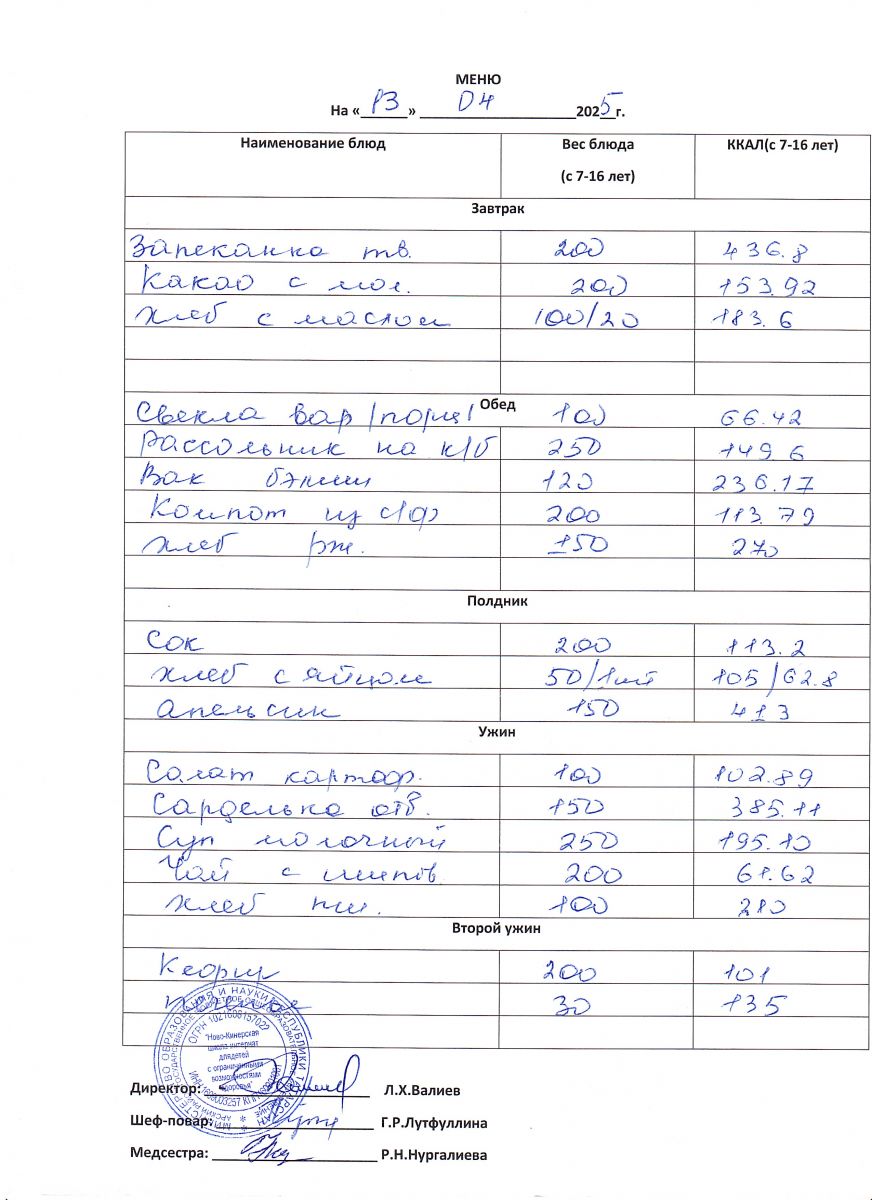 МЕНЮ
На «13» 04 2025 г.
Наименование блюд Вес блюда (с 7-16 лет) ККАЛ(с 7-16 лет)
Завтрак
Запеканка тв. 200 436.8
Какао с мол. 200 153.92
Хлеб с маслом 100/20 183.6
Обед
Свекла вар /порц/ 100 66.42
Рассольник на к/б 250 149 6
Вак бэлиш 120 236.17
Компот из с/ф 200 113.79
Хлеб рж. 150 270
Полдник
Сок 200 113.2
Хлеб с яйцом 50/1шт 105/62.8
Апельсин 150 413
Ужин
Салат картоф. 100 102.89
Сарделька отв. 150 385.11
Суп молочный 250 195.10
Чай с шипов. 200 61.62
Хлеб пш. 100 210
Второй ужин
Кефир 200 101
30 135
МИНИСТЕРСТВО ОБРАЗОВАНИЯ И НАУКИ РЕСПУБЛИКИ ТАТАРСТАН
ОГРН 1021606157022
"Ново-Кинерская
школа-интернат
для детей
с ограниченными
возможностями
здоровья"
Директор: Л.Х.Валиев
Шеф-повар: Г.Р.Лутфуллина
Медсестра: Р.Н.Нургалиева